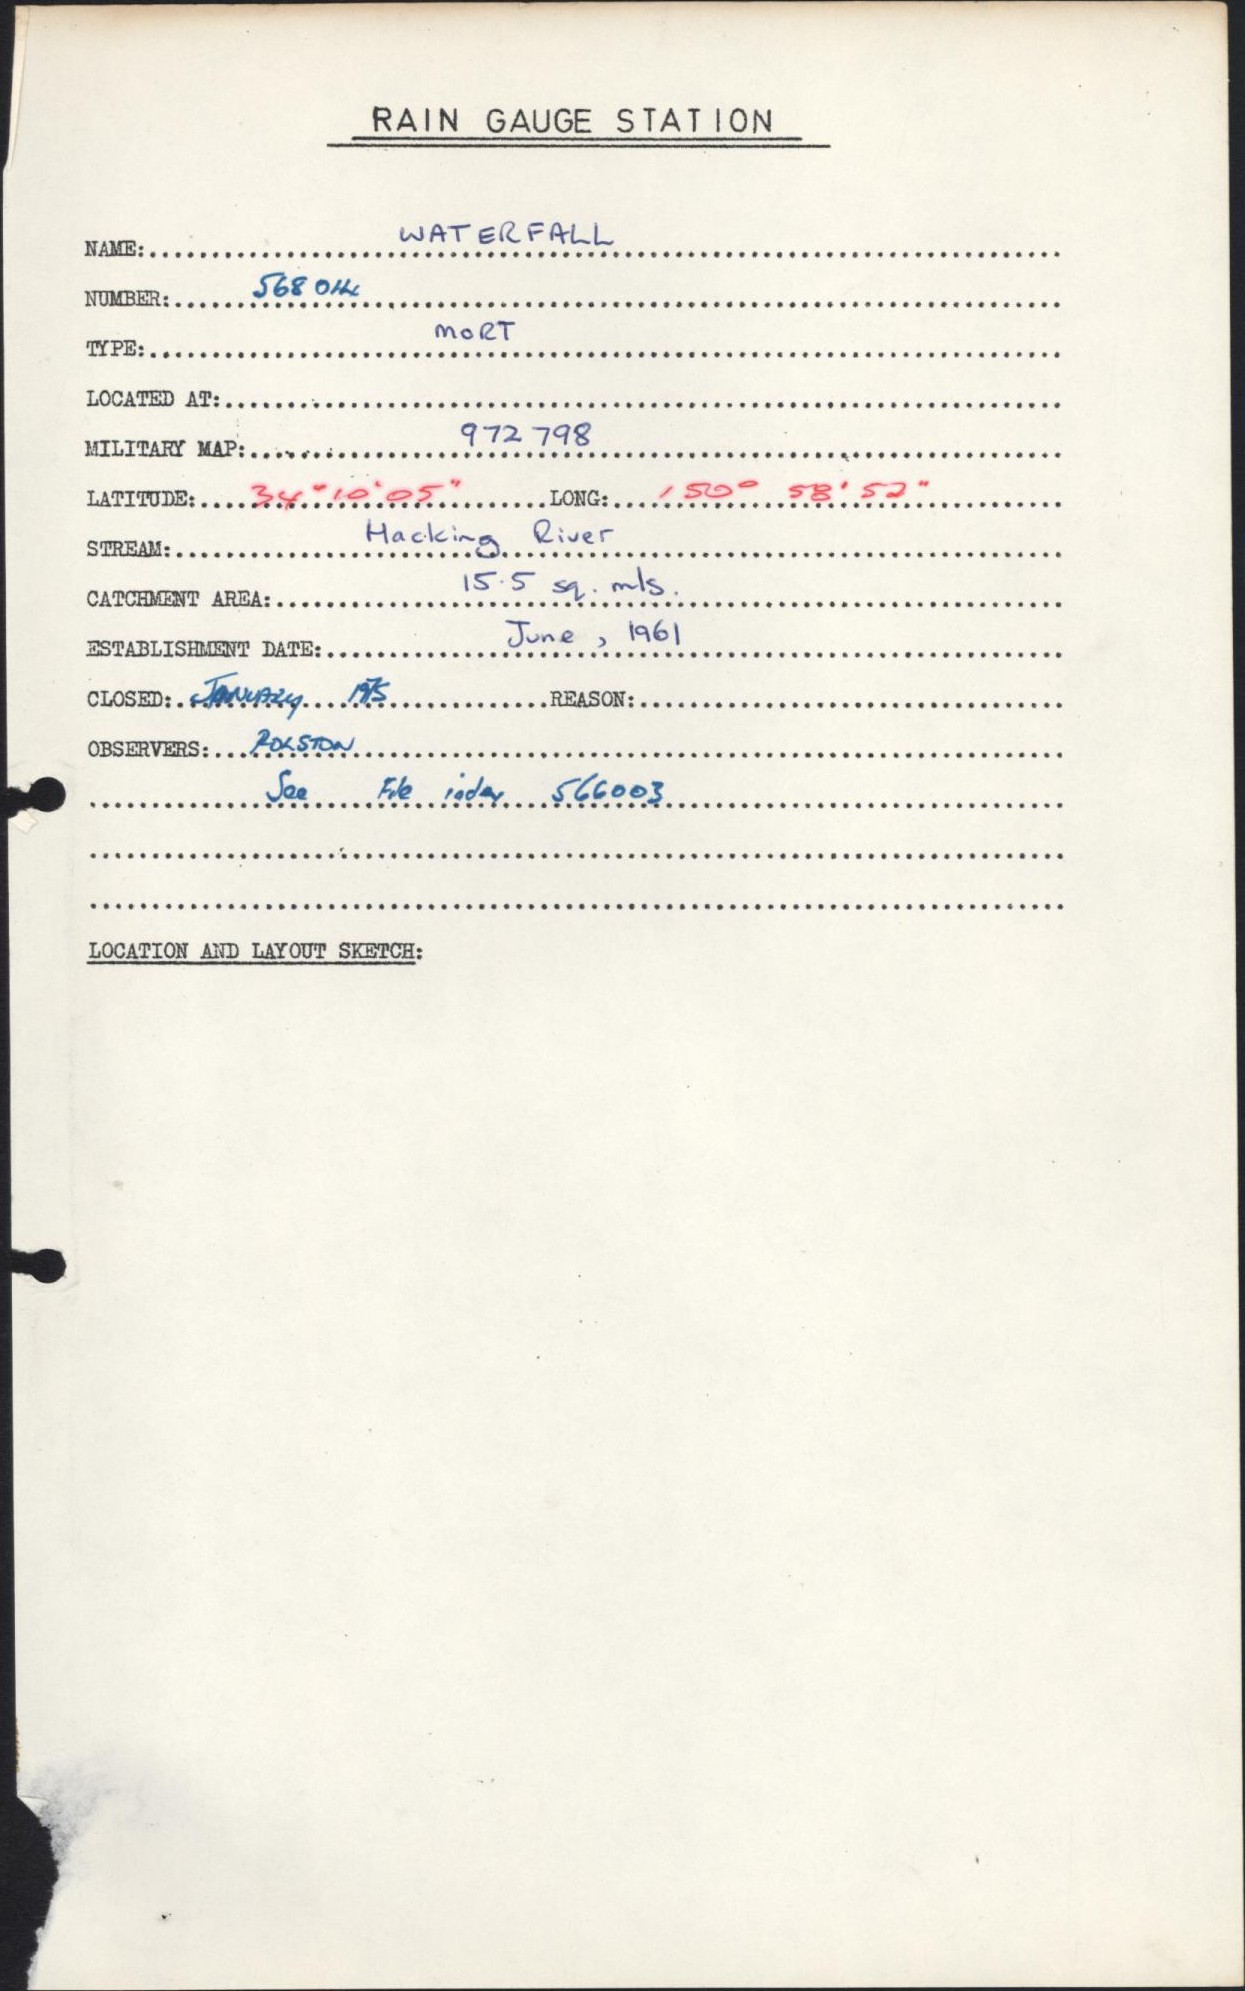 RAIN GAUGE STATION
NAME: WATERFALL
NUMBER: 568044
TYPE: MORT
LOCATED AT:
MILITARY MAP: 972798
LATITUDE: 34° 10' 05" LONG: 150° 58' 52"
STREAM: Hacking River
CATCHMENT AREA: 15.5 sq. mls.
ESTABLISHMENT DATE: June, 1961
CLOSED: JANUARY 1975 REASON:
OBSERVERS: ROLSTON
See File index 566003
LOCATION AND LAYOUT SKETCH: